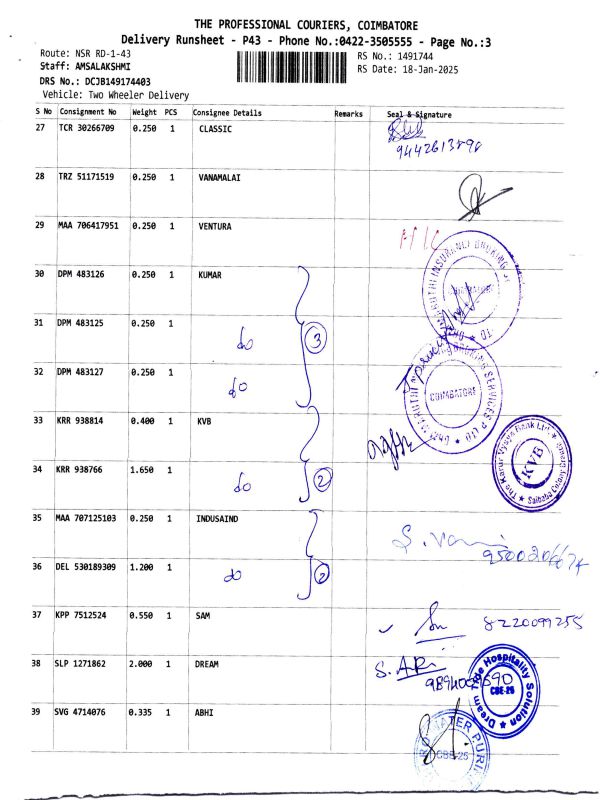 THE PROFESSIONAL COURIERS, COIMBATORE
Delivery Runsheet - P43 - Phone No.:0422-3505555 - Page No.:3
Route: NSR RD-1-43
RS No.: 1491744
Staff: AMSALAKSHMI
RS Date: 18-Jan-2025
DRS No.: DCJB149174403
Vehicle: Two Wheeler Delivery
S No Consignment No Weight PCS Consignee Details Remarks Seal & Signature
27 TCR 30266709 0.250 1 CLASSIC
28 TRZ 51171519 0.250 1 VANAMALAI
29 MAA 706417951 0.250 1 VENTURA
30 DPM 483126 0.250 1 KUMAR
31 DPM 483125 0.250 1 do 3
32 DPM 483127 0.250 1 do
COIMBATORE
33 KRR 938814 0.400 1 KVB
The Karur Vysya Bank Ltd. KVB Saibaba
34 KRR 938766 1.650 1 do 2
35 MAA 707125103 0.250 1 INDUSAIND
36 DEL 530189309 1.200 1 do 2
37 KPP 7512524 0.550 1 SAM 8220099255
38 SLP 1271862 2.000 1 DREAM
Dream Tree Hospitality Solution CBE-25
39 SVG 4714076 0.335 1 ABHI